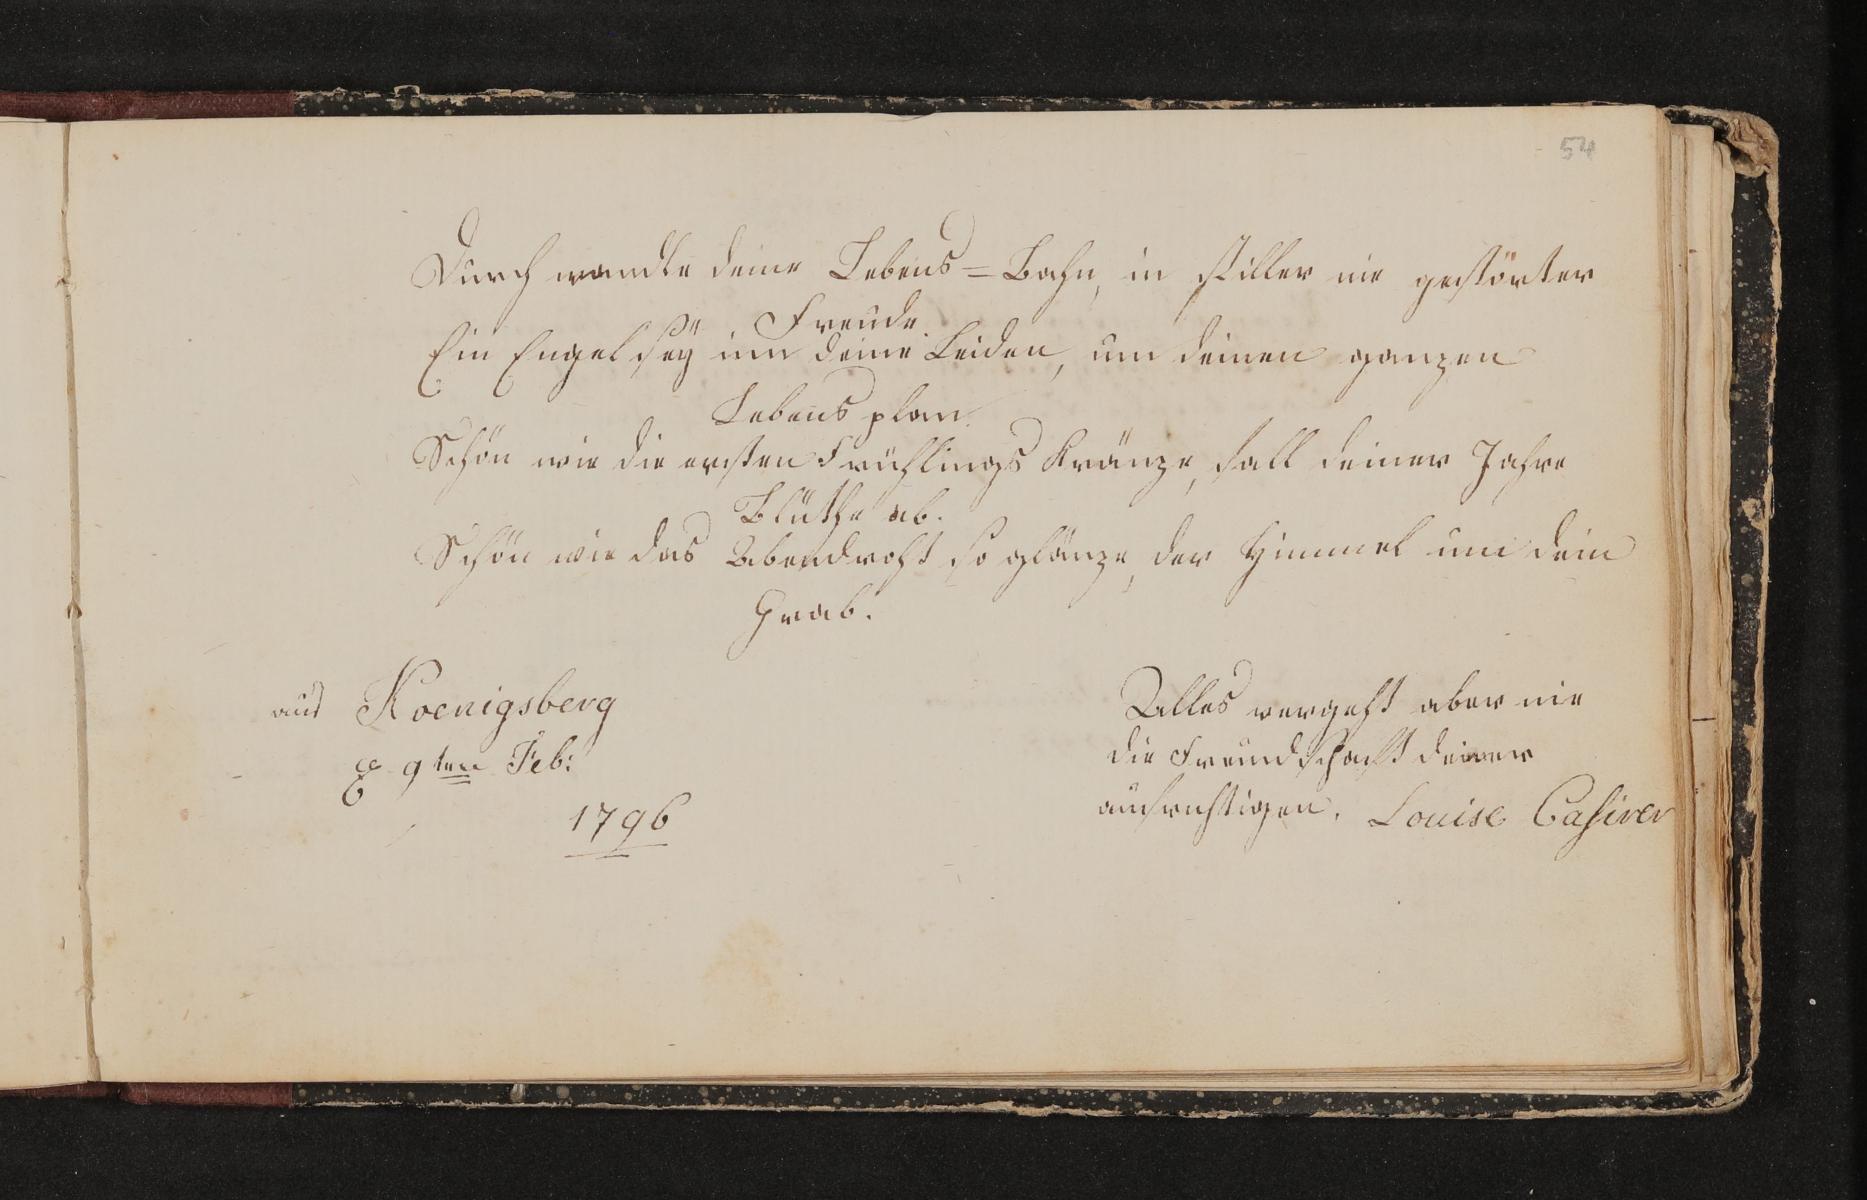 54
Durch wandle deine Lebens=Bahn, in stiller nie gestörter
Freude
Ein Engel seÿ um deine Leiden, um deinen ganzen
Lebens plan.
Schön wie die ersten Frühlings Kränze, fall deiner Jahre
Blüthe ab.
Schön wie das Abendroht so glänze, der Himmel um dein
Grab.
aus Koenigsberg
9ten Feb:
1796
Alles vergeht aber nie
die Freundschaft deiner
aufrichtigen. Louise Caßirer